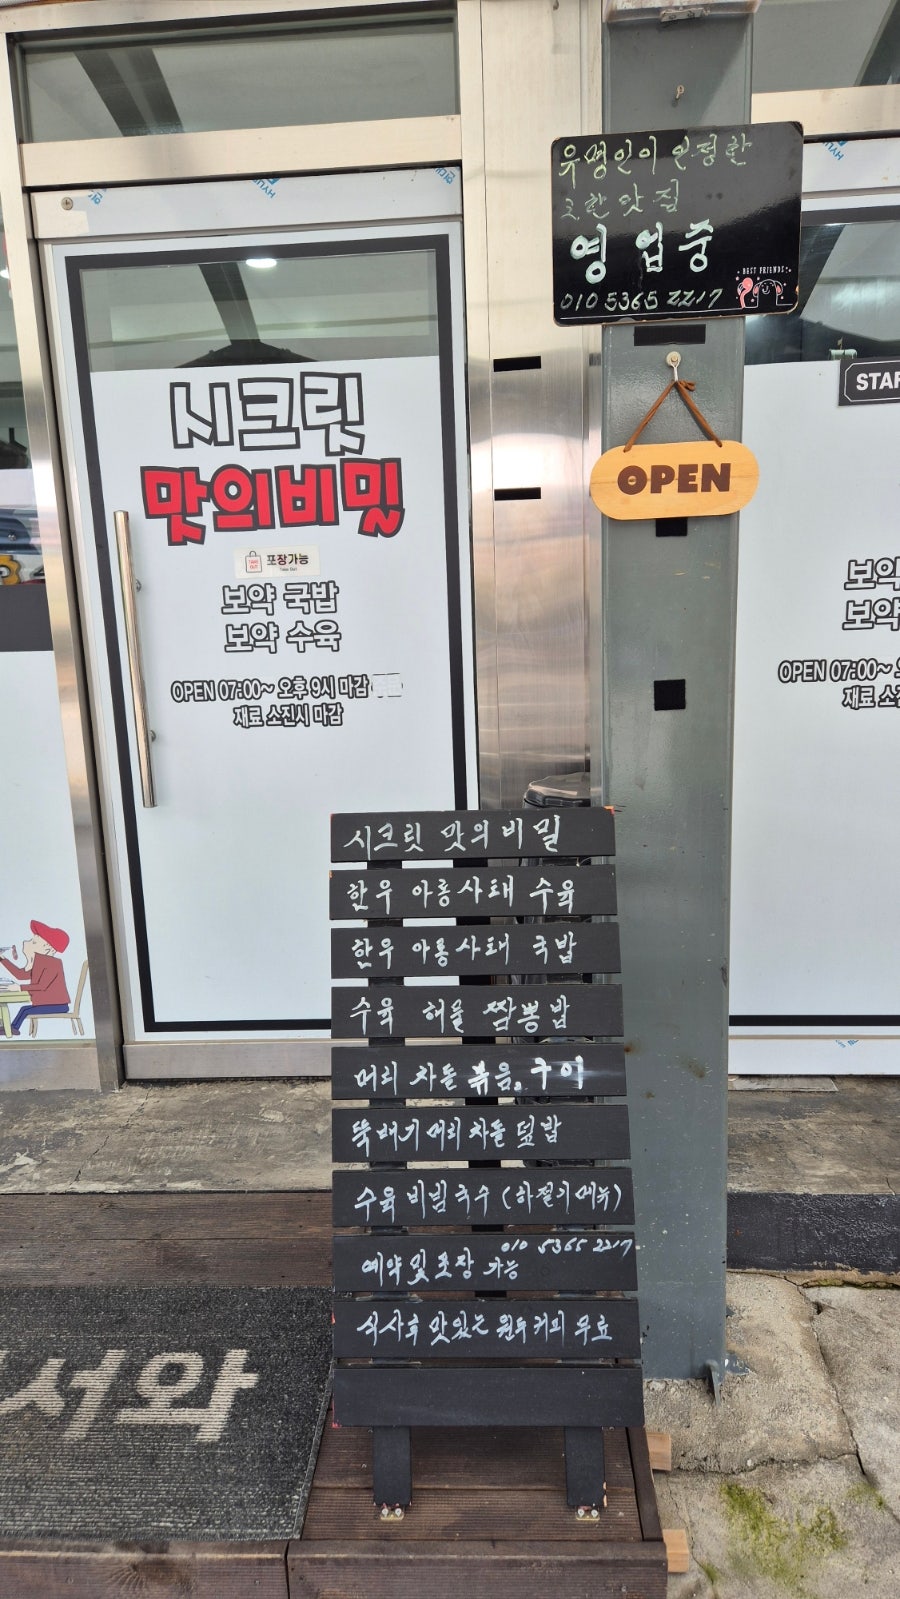 유명인이 인정한
영업중
010 5365 2217
BEST FRIENDS
OPEN
시크릿
맛의비밀
TAKE OUT
포장가능
Take Out
보약 국밥
보약 수육
OPEN 07:00~ 오후 9시 마감
재료 소진시 마감
STAR
보약
보약
OPEN 07:00~
재료 소진
시크릿 맛의 비밀
한우 아롱사태 수육
한우 아롱사태 국밥
수육 해물 짬뽕밥
머리 차돌 볶음, 구이
뚝배기 머리 차돌 덮밥
수육 비빔국수 (하절기메뉴)
010 5365 2217
예약 및 포장 가능
식사후 맛있는 원두커피 무료
어서와